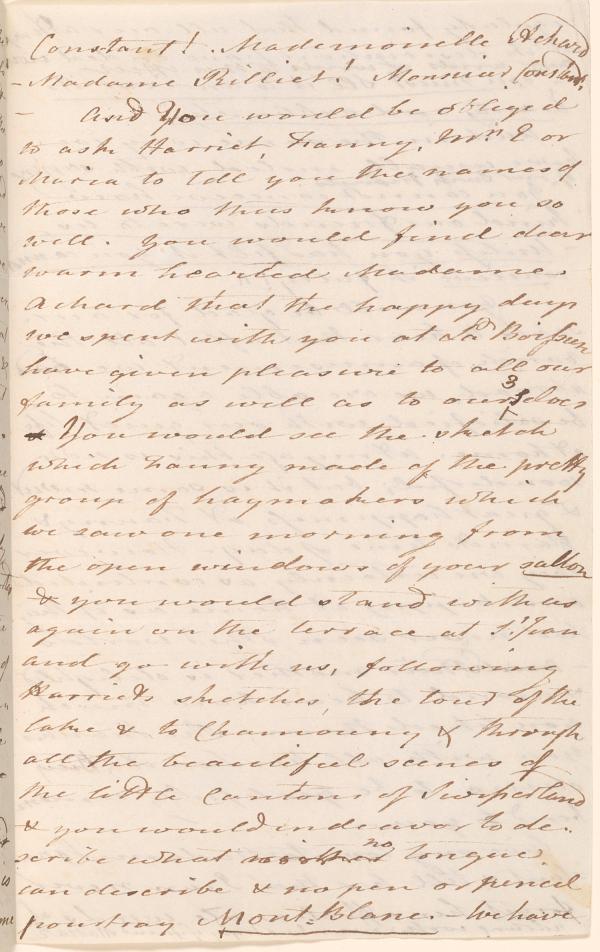 Constant! Mademoiselle Achard
– Madame Rilliet! Monsieur Constant.
– And you would be obliged
to ask Harriet, Fanny, Mrs E or
Maria to tell you the names of
those who thus know you so
well. You would find dear
warm hearted Madame
Achard that the happy days
we spent with you at La Boissiere
have given pleasure to all our
family as well as to our 3 selves
You would see the sketch
which Fanny made of the pretty
group of haymakers which
we saw one morning from
the open windows of your sallon
& you would stand with us
again on the terrace at St Jean
and go with us, following
Harriets sketches, the tour of the
lake & to Chamouny & through
all the beautiful scenes of
the little Cantons of Swisserland
& you would indeavor to de-
scribe what no tongue
can describe & no pen or pencil
pourtray Mont-Blanc. – We have